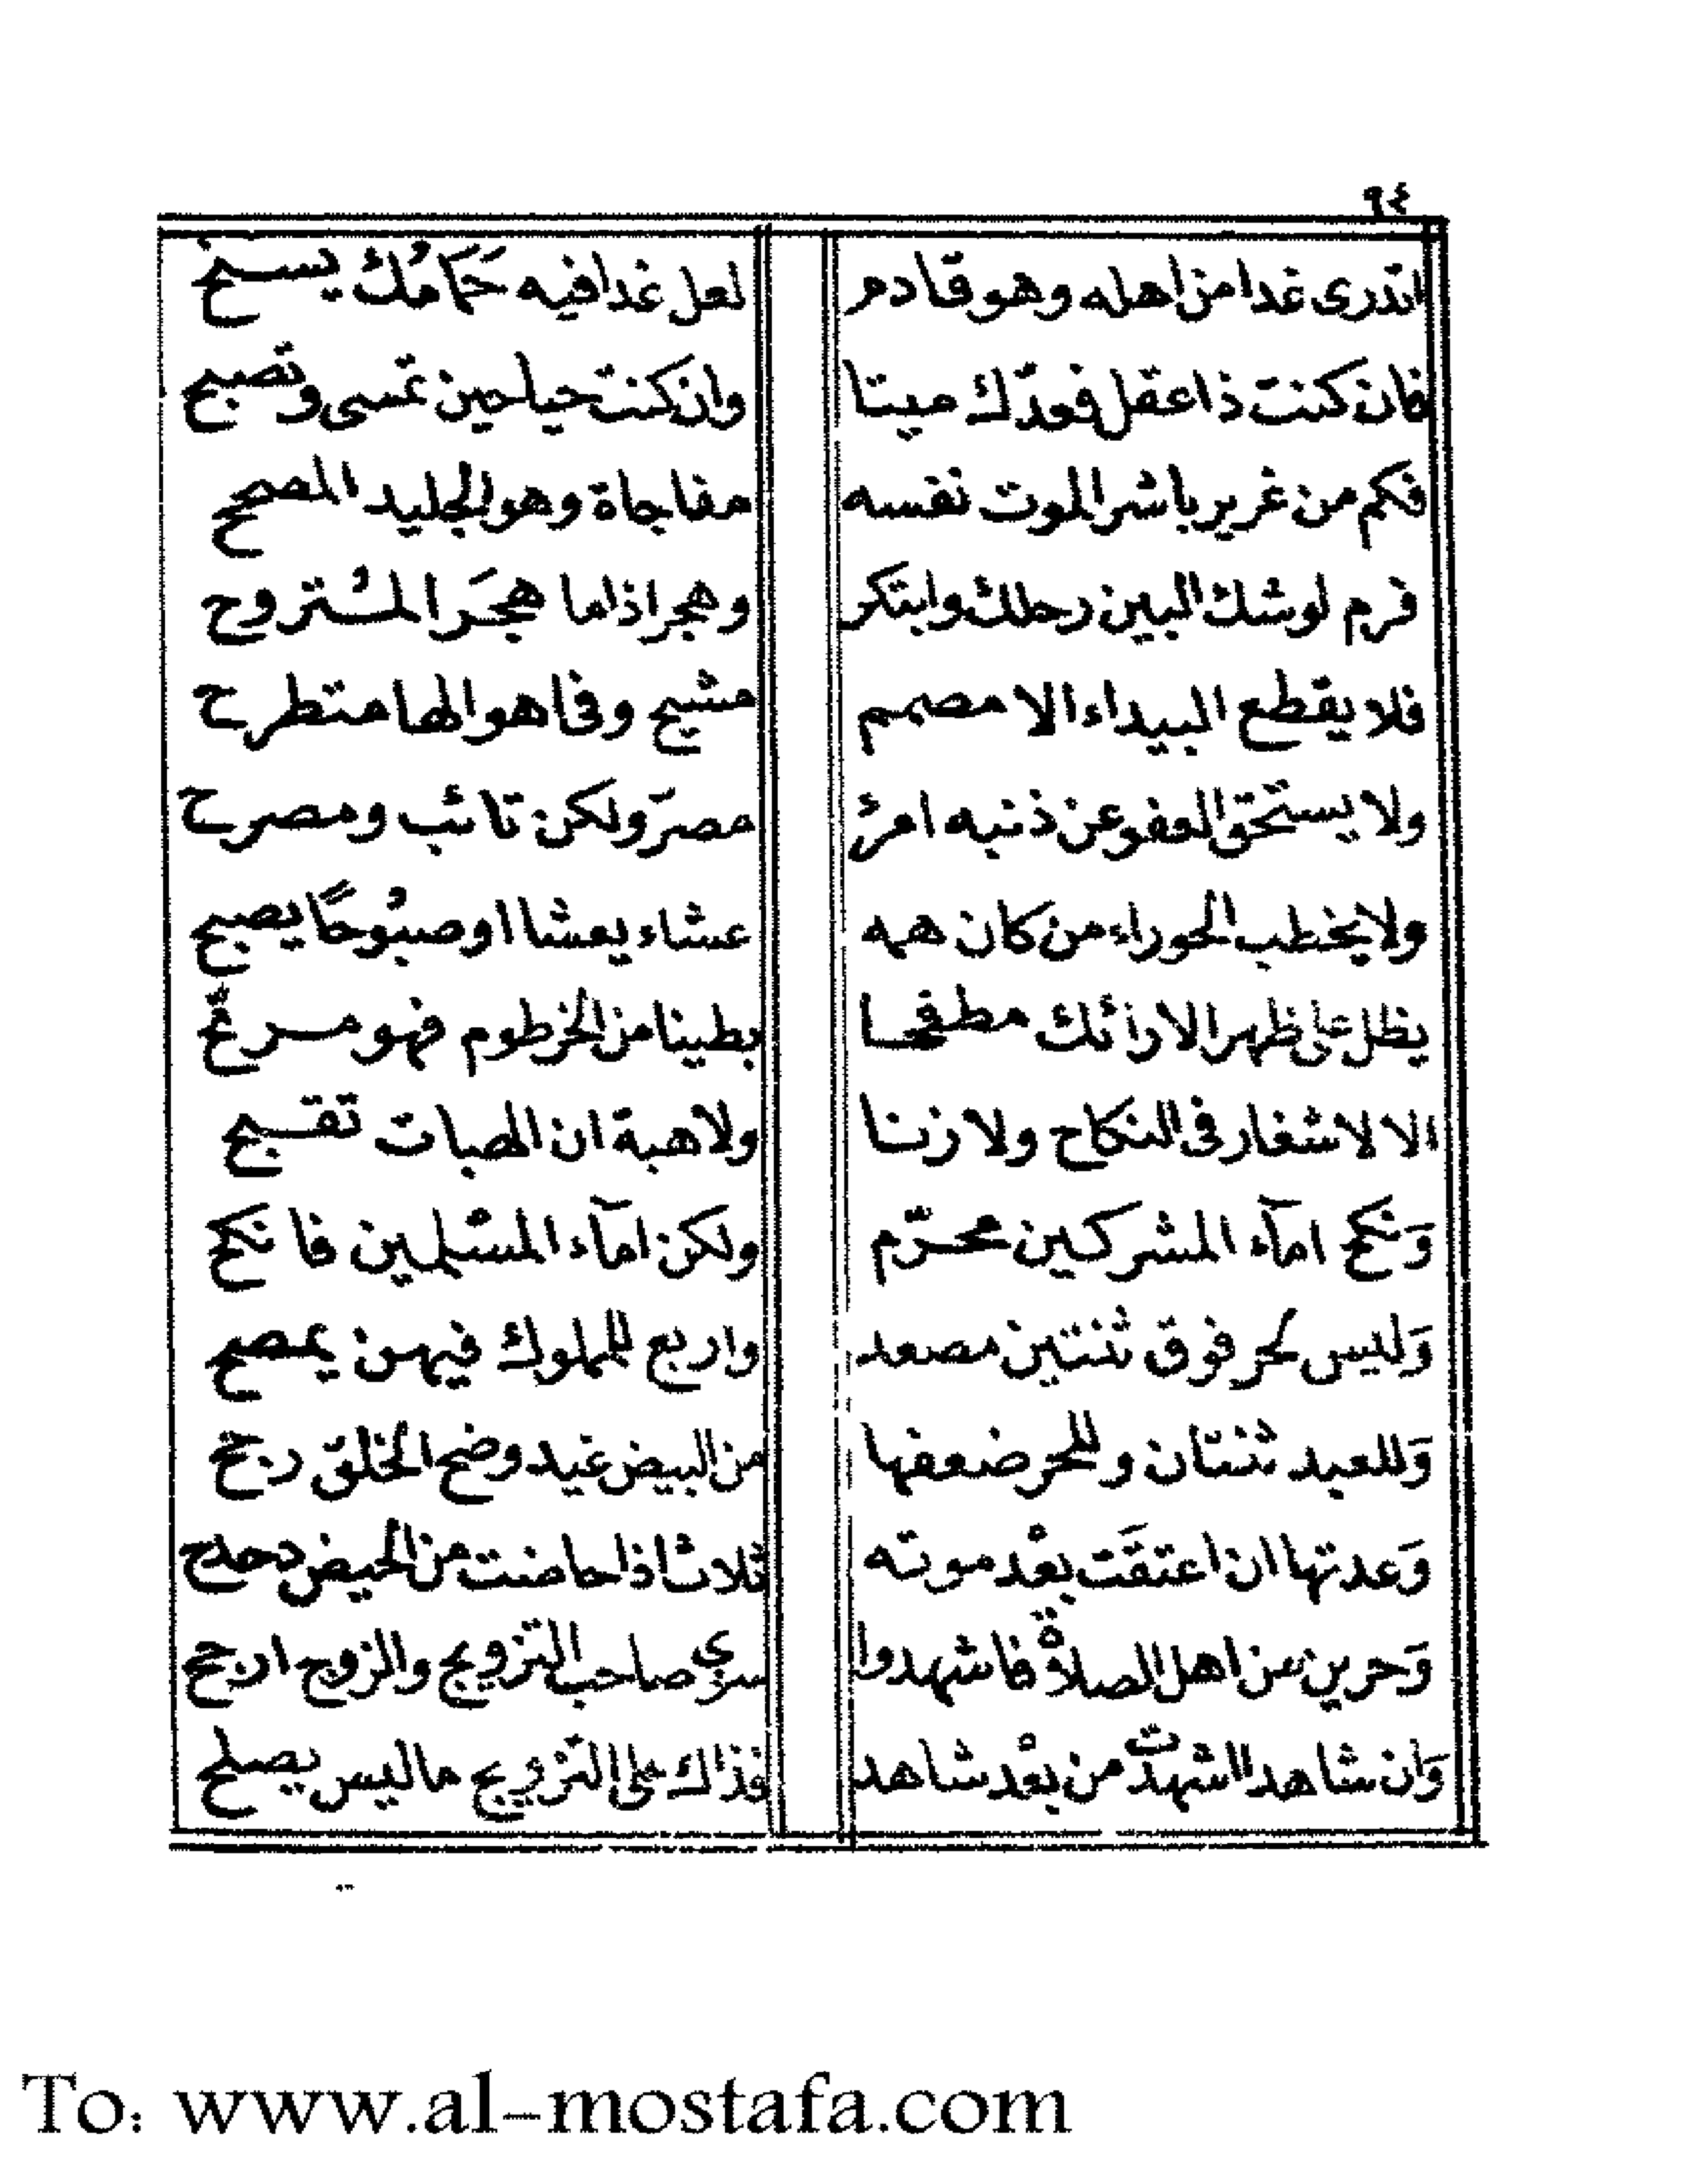 ٩٤
اتدرى غدا من اهله وهو قادم لعل غدا فيه حَمَامُك يسنح
فان كنت ذا عقل فعدّك ميتا وان كنت حيا حين تمسى وتصبح
فكم من غرير باشر الموت نفسه مفاجاة وهو الجليد المصحح
فرم لوشك البين رحلك وابتكر وهجر اذا ما هجَر المُتروح
فلا يقطع البيداء الا مصمم مشيح وفى اهوالها متطرح
ولا يستحق العفو عن ذنبه امرئ مصرّ ولكن تائب ومصرح
ولا يخطب الحوراء من كان همه عشاء يعشا او صبُوحًا يصبح
يظل على ظهر الارائك مطفحا بطينا من الخرطوم فهو مرنّح
الا لا شغار فى النكاح ولا زنا ولا هبة ان الهبات تقبح
وَنكح امآء المشركين محرّم ولكن امآء المسْلمين فانكح
وَليس لحر فوق ثنتين مصعد واربع للملوك فيهن يمصح
وَللعبد ثنتان وللحر ضعفها من البيض غيد وضح الخلق رجح
وَعدتها ان اعتقَت بعْد موته ثلاث اذا حاضت من الحيض دحدح
وَحرين من اهل الصلاة فاشهدوا سوي صاحب التزويج والزوج ارجح
وَان شاهدا اشهدت من بعْد شاهد فذاك على التزويج ما ليس يصلح
To: www.al-mostafa.com